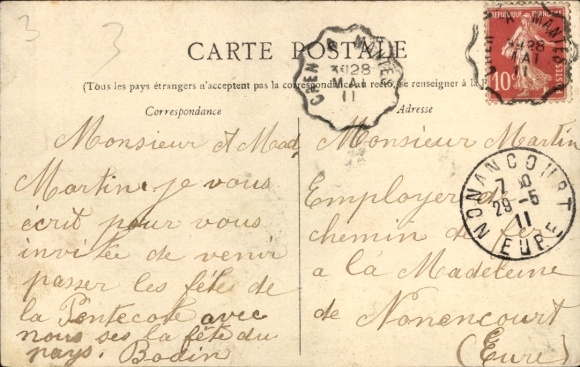 3
3
CARTE POSTALE
(Tous les pays étrangers n'acceptent pas la correspondance au recto, se renseigner à la
Correspondance
Adresse
Monsieur et Mad
Martin je vous
écrit pour vous
invitée de venir
passer les fête de
la Pentecote avec
nous ses la fête du
pays. Bodin
Monsieur Martin
Employer de
chemin de fere
a la Madeleine
de Nonencourt
(Eure)
A MANTES
28
MAI
11
REPUBLIQUE FRANÇAISE
10
POSTES
A MANTES
28
MAI
11
NONANCOURT
7
29-5
11
EURE